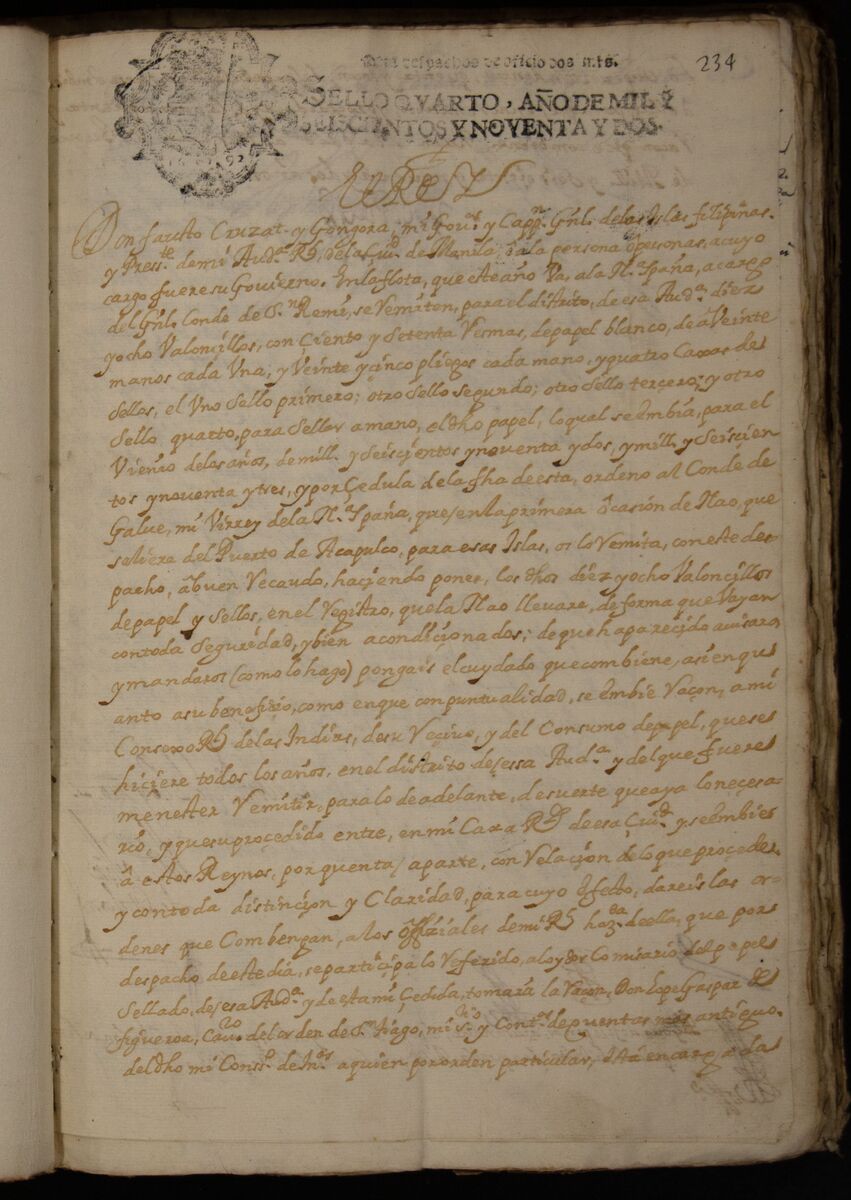 Para despachos de oficio dos mrs.
234
SELLO QVARTO, AÑO DE MIL Y
SEISCIENTOS Y NOVENTA Y DOS.
El Rey
Don fausto Cruzat y Gongora, mi Gouor. y Cappn. Gnl. de las Islas filipinas.
y Presste. de mi Auda. Rl. de la Çiud. de Manila, ô a la persona, ô personas, a cuyo
cargo fuere su Gouierno. En la flota, que este año Va, a la Na. españa, a cargo
del Gnl. Conde de Sn. Remi, se Remiten, para el distrito, de esa Auda. diez
y ocho Valoncillos, con Çiento y Setenta Resmas, de papel blanco, de â Veinte
manos cada Vna, y Veinte y çinco pliegos cada mano, y quatro Caxas de
Sellos, el Vno Sello primero; otro Sello segundo; otro Sello terçero; y otro
Sello quarto, para Sellar a mano, el dho papel, lo qual se embia, para el
Vienio de los años, de mill y seisçientos y noventa y dos, y mill y Seisçien
tos y noventa y tres, y por Çedula de la fha de esta, ordeno al Conde de
Galue, mi Virrey de la Na. españa, que, en la primera ôcasion de Nao, que
saliere del Puerto de Acapulco, para esas Islas, os lo Remita, con este des
pacho, â buen Recaudo, haçiendo poner, los dhos diez y ocho Valonçillos
de papel y Sellos, en el Registro, que la Nao lleuare, de forma que Vayan
con toda Seguridad, y bien acondiçionados; de que ha pareçido auisaros
y mandaros (como lo hago) pongais el cuydado que combiene, asi en qu
anto a su benefiçio, como en que con puntualidad, se embie Raçon, a mi
Consexo Rl. de las Indias, de su Reçiuo, y del Consumo de papel, que se
hiçiere todos los años, en el distrito de esa Auda. y del que fuere
menester Remitir, para lo de adelante, de suerte que aya lo neçesa-
rio, y que su proçedido entre, en mi Caxa Rl. de esa Çiud. y se embie
â estos Reynos, por quenta aparte, con Relaçion de lo que proçede,
y con toda distinçion y Claridad, para cuyo efecto, dareis las or-
denes que Combengan, a los ôffiziales de mi Rl. hazda. de ella, que por
despacho de este dia, se participa lo Referido, al oydor Comisario del papel
Sellado, de esa Auda. y de esta mi Çedula, tomarà la Raçon, Don Lope Gaspar de
figueroa, Cauo. del orden de Sn. tiago, mi Srio. y Contor. de quentas mas antiguo
del dho mi Conso. de Inas. a quien por orden particular, està encargada